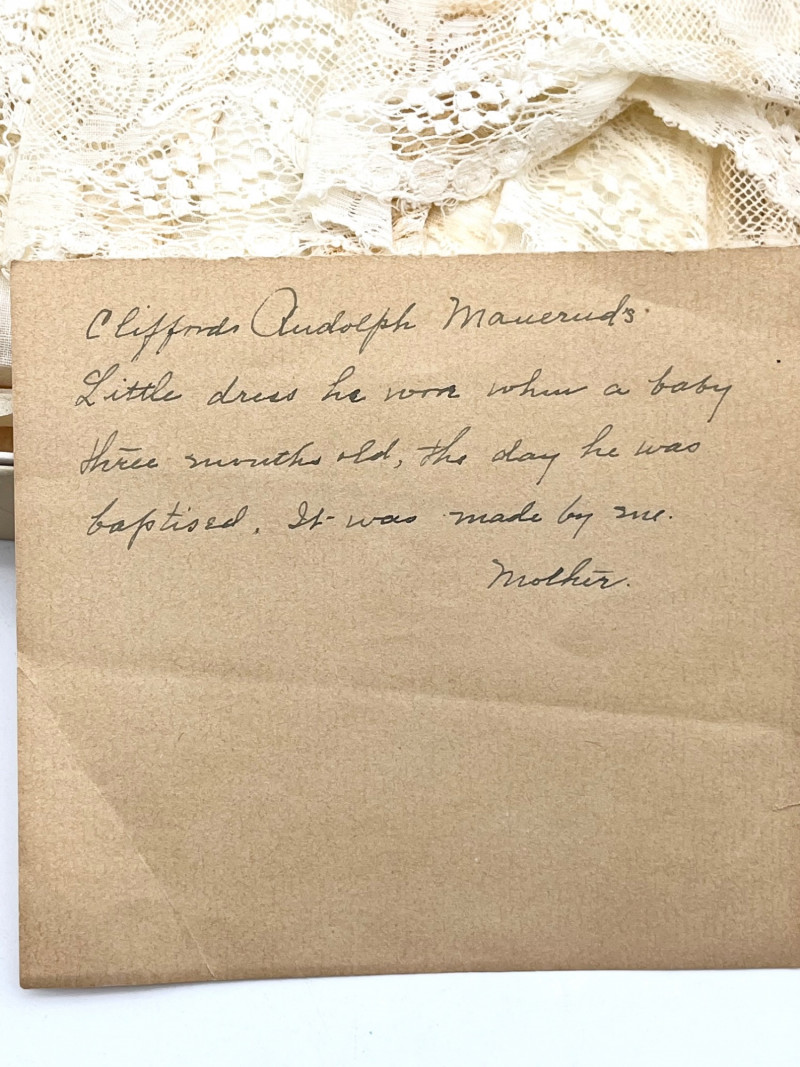 Cliffords Rudolph Mauerud's.
Little dress he wore when a baby
three months old, the day he was
baptised. It was made by me.
Mother.